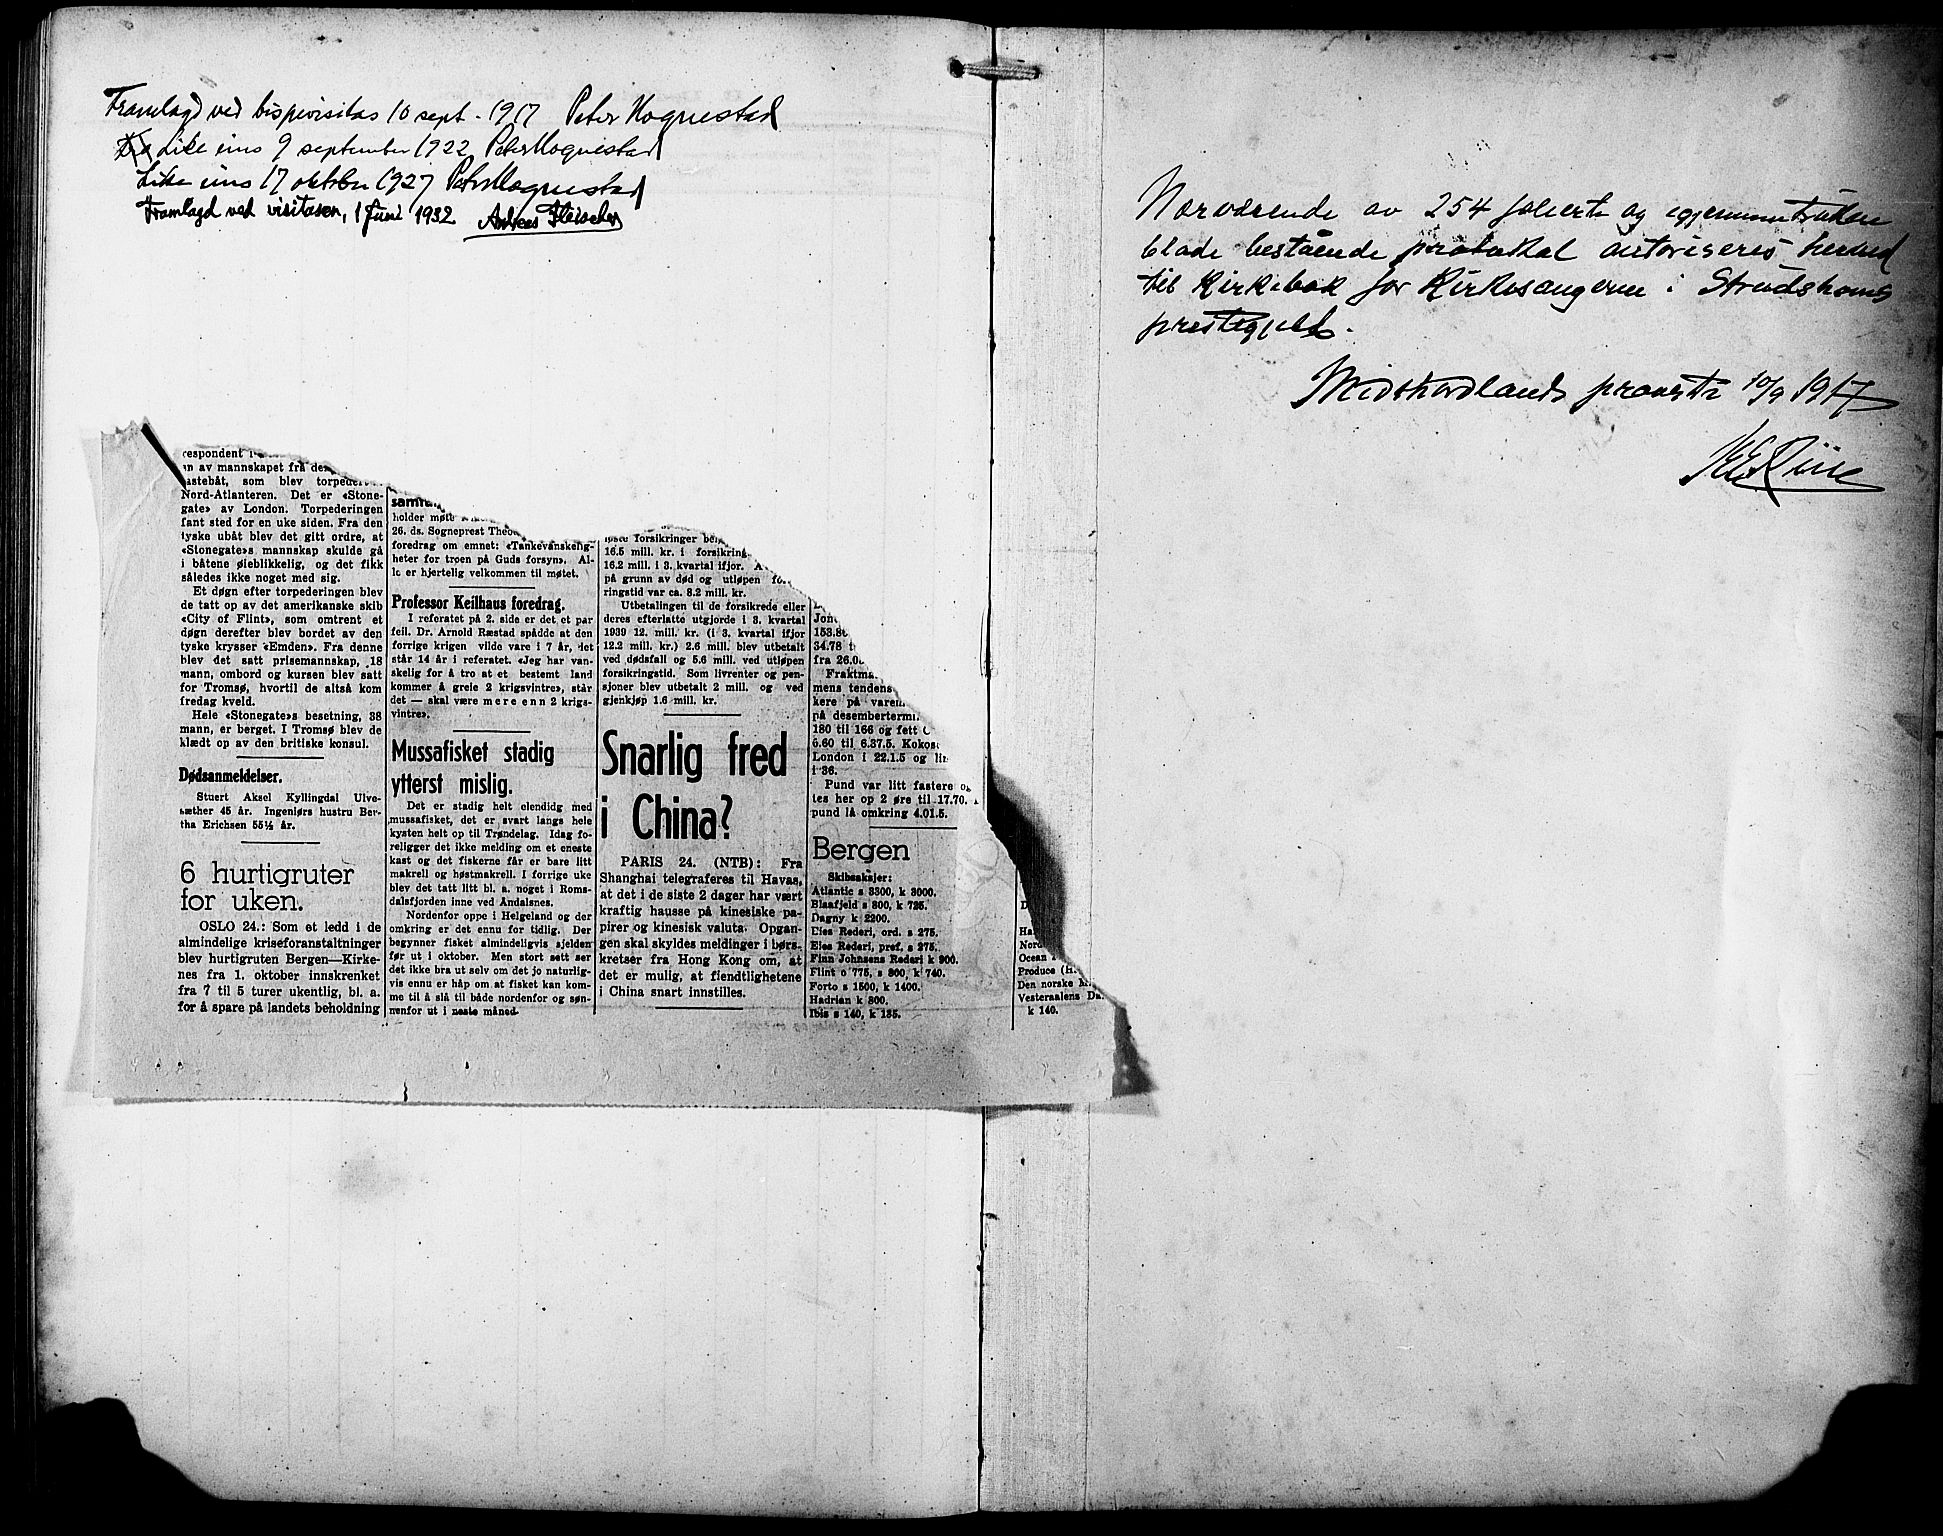 Framlagd ved bispevisitas 10 sept. 1917 Peter Hognestad
Like eins 9 september 1922 Peter Hognestad
Like eins 17 oktober 1927 Peter Hognestad
Framlagd ved visitasen, 1 Juni 1932 Andreas Fleischer
respondent
av mannskapet fra
lastebåt, som blev
Nord-Atlanteren. Det er «Stone-
gate» av London. Torpederingen
fant sted for en uke siden. Fra den
tyske ubåt blev det gitt ordre, at
«Stonegate»s mannskap skulde gå
i båtene øieblikkelig, og det fikk
således ikke noget med sig.
Et døgn efter torpederingen blev
de tatt op av det amerikanske skib
«City of Flint», som omtrent et
døgn derefter blev bordet av den
tyske krysser «Emden». Fra denne
blev det satt prisemannskap, 18
mann, ombord og kursen blev satt
for Tromsø, hvortil de altså kom
fredag kveld.
Hele «Stonegate»s besetning, 38
mann, er berget. I Tromsø blev de
klædt op av den britiske konsul.
Dødsanmeldelser.
Stuert Aksel Kyllingdal Ulve-
sæther 45 år. Ingeniørs hustru Ber-
tha Erichsen 55½ år.
6 hurtigruter
for uken.
OSLO 24.: Som et ledd i de
almindelige kriseforanstaltninger
blev hurtigruten Bergen—Kirke-
nes fra 1. oktober innskrenket
fra 7 til 5 turer ukentlig, bl. a.
for å spare på landets beholdning
holder møte
26. ds. Sogneprest
foredrag om emnet: «Tankevanskelig-
heter for troen på Guds forsyn». Al-
le er hjertelig velkommen til møtet.
Professor Keilhaus foredrag.
I referatet på 2. side er det et par
feil. Dr. Arnold Ræstad spådde at den
forrige krigen vilde vare i 7 år, det
står 14 år i referatet. «Jeg har van-
skelig for å tro at et bestemt land
kommer å greie 2 krigsvintre», står
det — skal være mere enn 2 krigs-
vintre».
Mussafisket stadig
ytterst mislig.
Det er stadig helt elendidg med
mussafisket, det er svart langs hele
kysten helt op til Trøndelag. Idag fo-
religger det ikke melding om et eneste
kast og det fiskerne får er bare litt
makrell og høstmakrell. I forrige uke
blev det tatt litt bl. a. noget i Roms-
dalsfjorden inne ved Åndalsnes.
Nordenfor oppe i Helgeland og der
omkring er det ennu for tidlig. Der
begynner fisket almindeligvis sjelden
før ut i oktober. Men stort sett ser
det ikke bra ut selv om det jo naturlig-
vis ennu er håp om at fisket kan kom-
me til å slå til både nordenfor og søn-
nenfor ut i neste måned.
forsikringer
16.5 mill. kr. i
16.2 mill. i 3. kvartal ifjor.
på grunn av død og utløpen
ringstid var ca. 8.2 mill. kr.
Utbetalingen til de forsikrede eller
deres efterlatte utgjorde i 3. kvartal
1939 12. mill. kr. (i 3. kvartal ifjor
12.2 mill. kr.) 2.6 mill. blev utbetalt
ved dødsfall og 5.6 mill. ved utløpen
forsikringstid. Som livrenter og pen-
sjoner blev utbetalt 2 mill. og ved
gjenkjøp 1.6 mill. kr.
Snarlig fred
i China?
PARIS 24. (NTB): Fra
Shanghai telegraferes til Havas,
at det i de siste 2 dager har vært
kraftig hausse på kinesiske pa-
pirer og kinesisk valuta. Opgan-
gen skal skyldes meldinger i børs-
kretser fra Hong Kong om, at
det er mulig, at fiendtlighetene
i China snart innstilles.
34.78
fra
mens tendens
kere på
på
180 til 166 og fett
6.60 til 6.37.5.
London i 22.1.5 og
i 36.
Pund var litt fastere og
tes her op 2 øre til 17.70.
pund lå omkring 4.01.5.
Bergen
Skibsaksjer:
Atlantic s 3300, k 3000.
Blaafjeld s 800, k 725.
Dagny k 2200.
Eies Rederi, ord. s 275.
Eies Rederi, pref. s 275.
Finn Johnsens Rederi k 900.
Flint o 775, s 800, k 740.
Forto s 1500, k 1400.
Hadrian k 800.
Ibis s 140, k 135.
Ocean
Produce (H.
Den norske
Vesteraalens
k 140.
Nærværende av 254 folierte og igjennemtrukne
blade bestående protokol autoriseres herved
til Kirkebok for Kirkesangeren i Strudshavns
prestegjeld.
Midthordlands provsti 10/9 1917